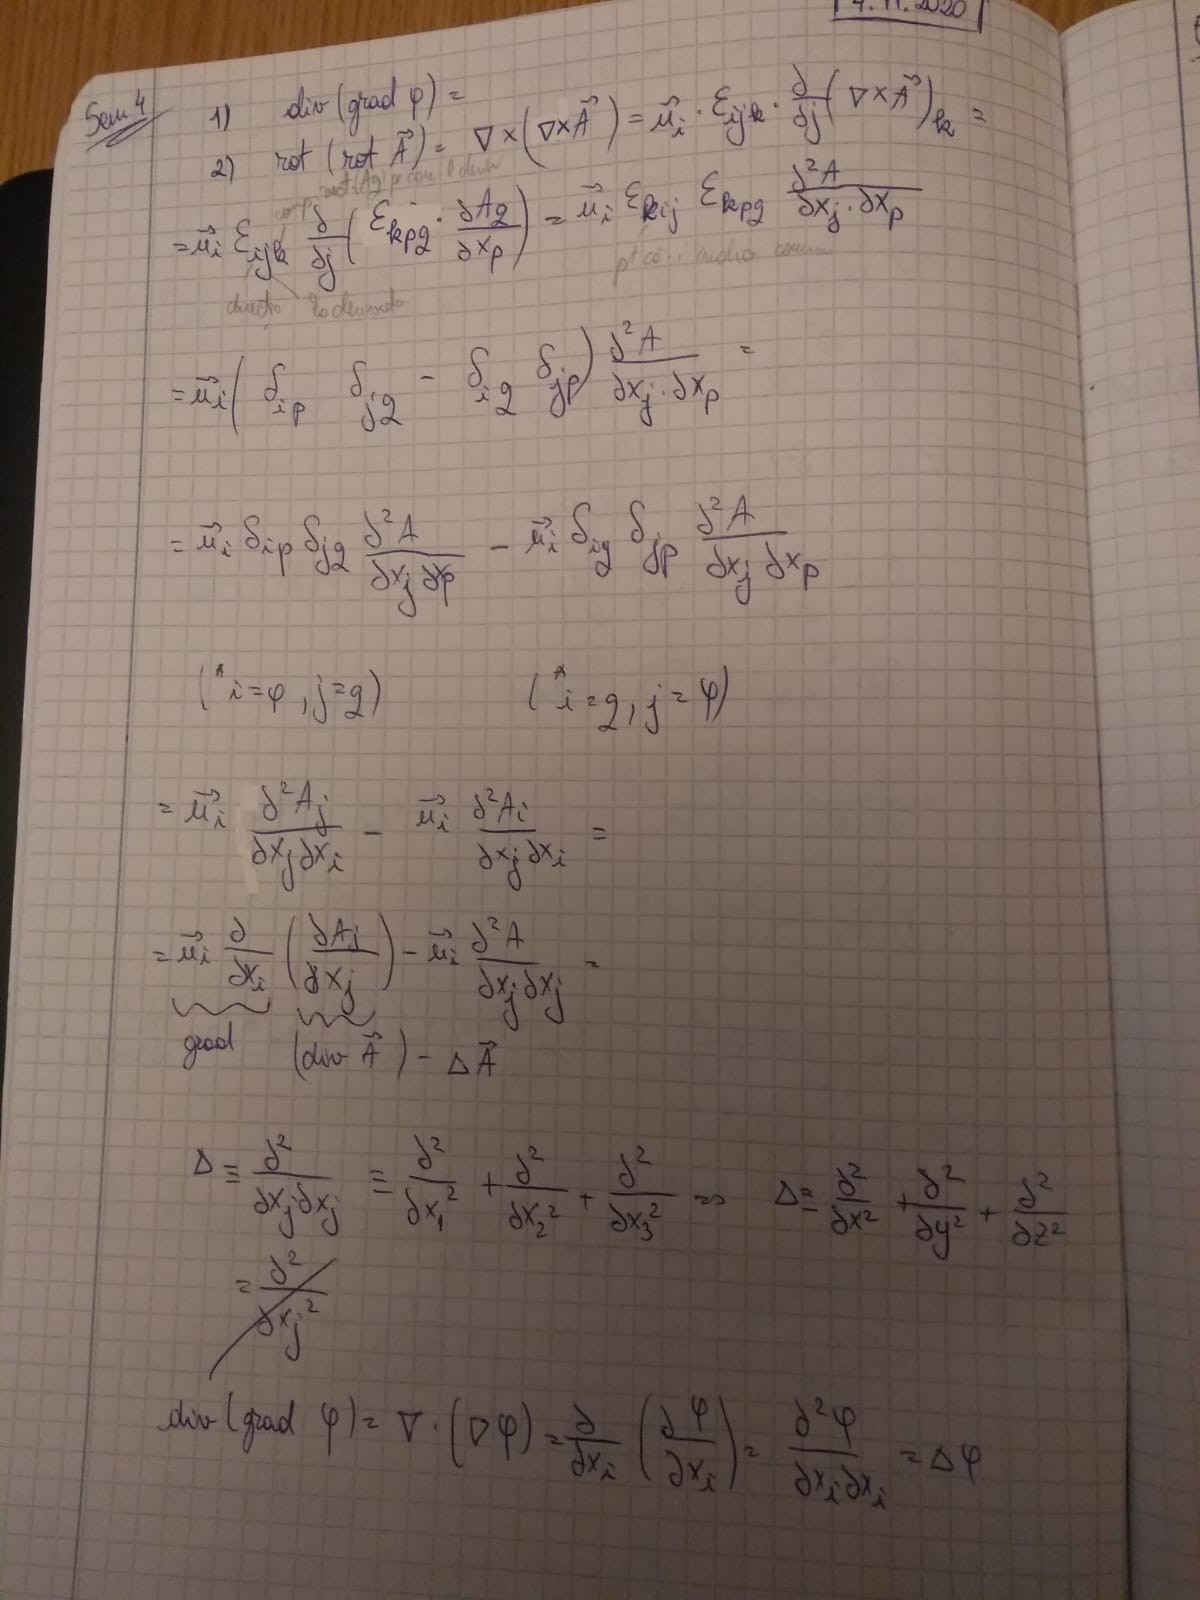 4.11.2020
Sem 4
1) div (grad φ) =
2) rot (rot A⃗) = ∇×(∇×A⃗) = u⃗i · εijk · ∂/∂j (∇×A⃗)k =
= u⃗i εijk ∂/∂j (εkpq · ∂Aq/∂xp) = u⃗i εkij εkpq ∂²A/∂xj·∂xp
direcția derivata
= u⃗i (δip δjq − δiq δjp) ∂²A/∂xj·∂xp =
= u⃗i δip δjq ∂²A/∂xj ∂xp − u⃗i δiq δjp ∂²A/∂xj ∂xp
(* i=φ, j=q) (* i=q, j=φ)
= u⃗i ∂²Aj/∂xj∂xi − u⃗i ∂²Ai/∂xj∂xi =
= u⃗i ∂/∂xi (∂Aj/∂xj) − u⃗i ∂²A/∂xj∂xj =
grad (div A⃗) − ΔA⃗
Δ ≡ ∂²/∂xj∂xj ≡ ∂²/∂x1² + ∂²/∂x2² + ∂²/∂x3² => Δ ≡ ∂²/∂x² + ∂²/∂y² + ∂²/∂z²
= ∂²/∂xj²
div (grad φ) = ∇·(∇φ) = ∂/∂xi (∂φ/∂xi) = ∂²φ/∂xi∂xi = Δφ